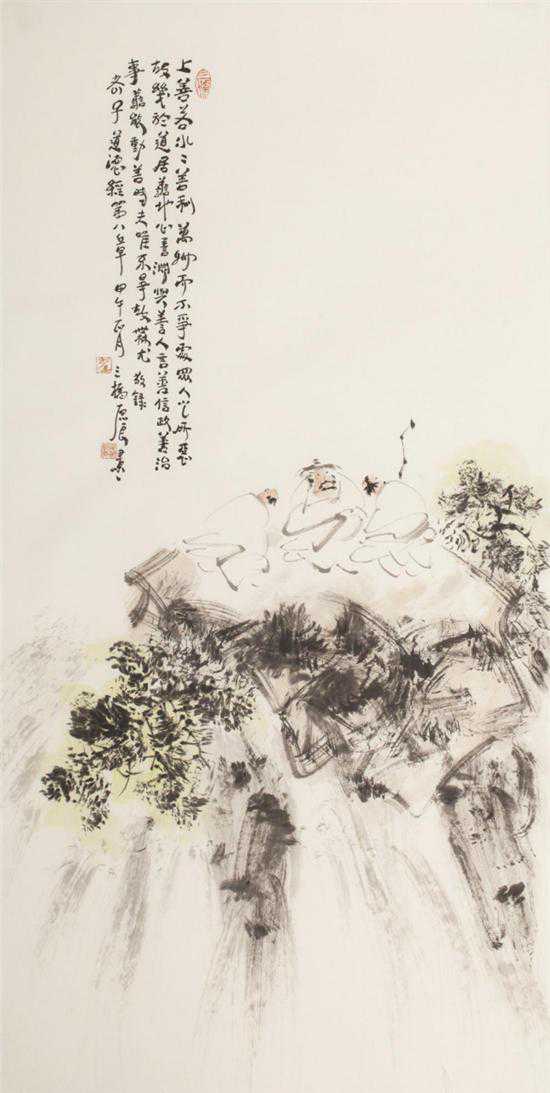 上善若水〻善利萬物而不爭處眾人之所惡
故幾於道居善地心善淵與善人言善信政善治
事善能動善時夫唯不爭故無尤 敬錄
老子道德經第八章 甲午正月 三橋